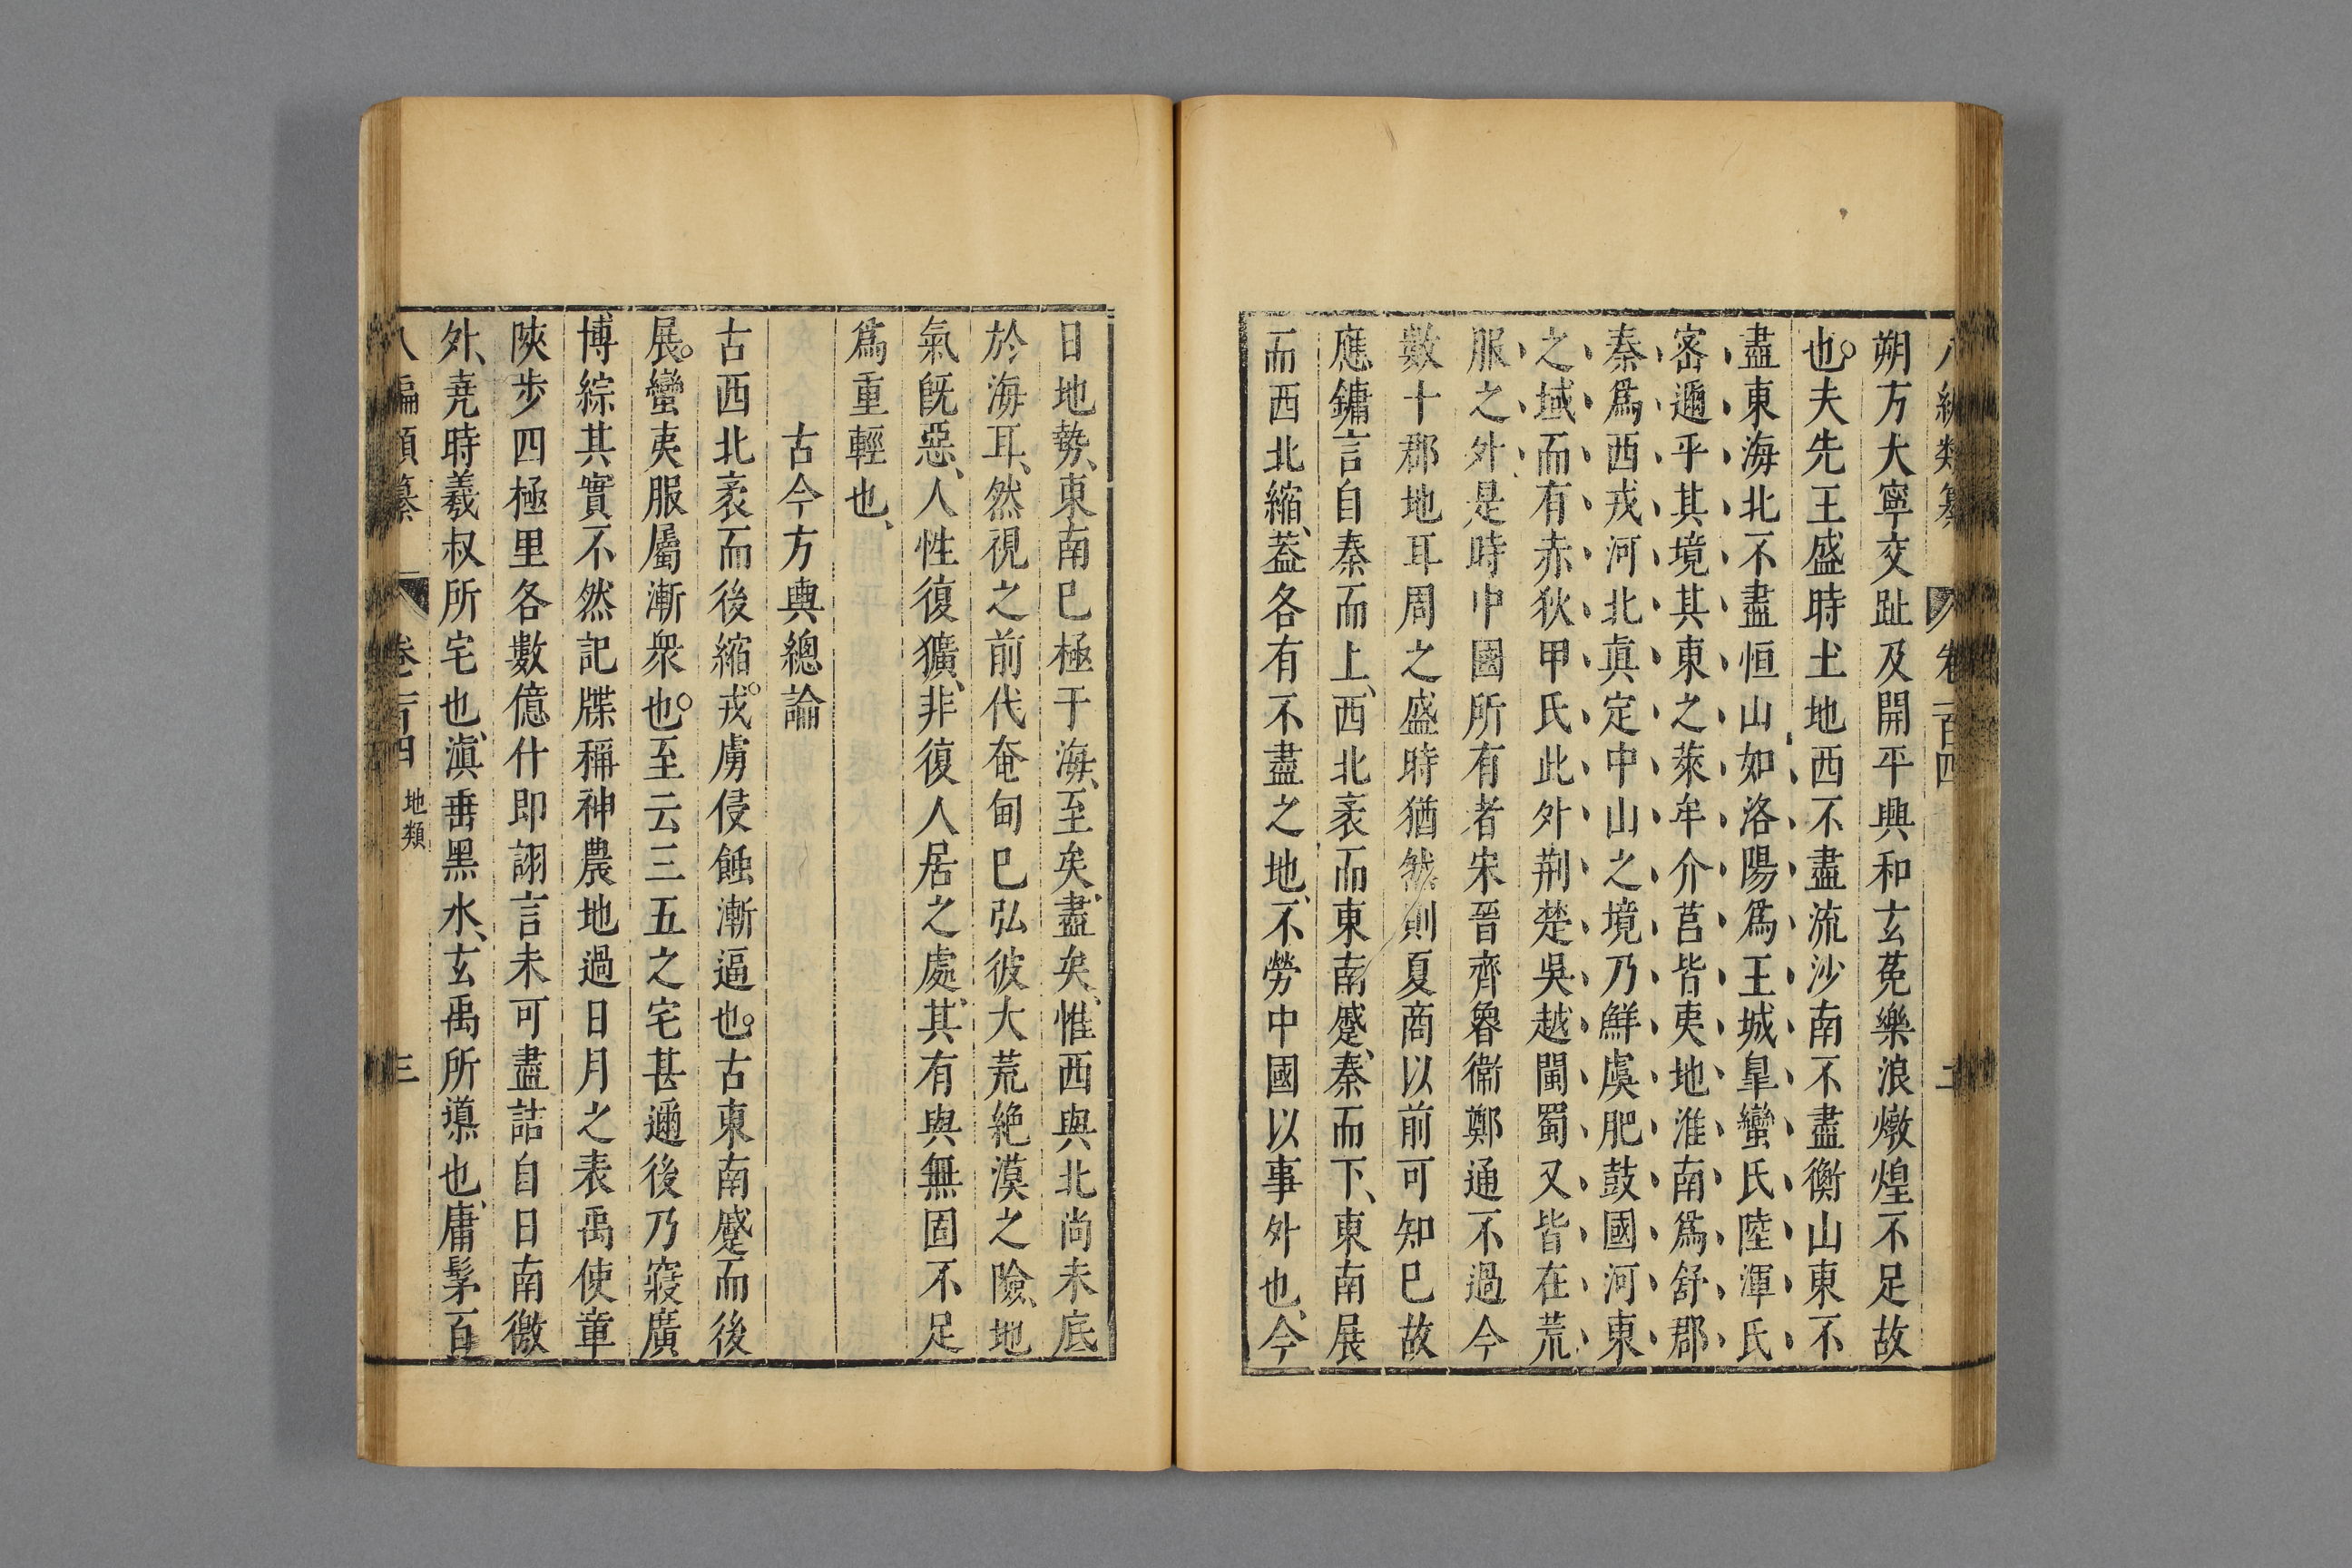 八編類纂 卷一百四 二
朔方大寧交趾及開平興和玄菟樂浪燉煌不足故
也夫先王盛時土地西不盡流沙南不盡衡山東不
盡東海北不盡恒山如洛陽爲王城皐蠻氏陸渾氏
宻邇乎其境其東之萊牟介莒皆夷地淮南爲舒郡
秦爲西戎河北眞定中山之境乃鮮虞肥鼓國河東
之域而有赤狄甲氏此外荆楚吳越閩蜀又皆在荒
服之外是時中國所有者宋晉齊魯衞鄭通不過今
數十郡地耳周之盛時猶然則夏商以前可知巳故
應鏞言自秦而上、西北袤而東南蹙、秦而下、東南展
而西北縮、葢各有不盡之地、不勞中國以事外也、今
日地勢、東南巳極于海、至矣、盡矣、惟西與北尚未底
於海耳、然視之前代奄甸巳弘彼大荒絶漠之險、地
氣旣惡、人性復獷、非復人居之處、其有與無固不足
爲重輕也、
古今方輿總論
古西北袤而後縮。戎虜侵蝕漸逼也。古東南蹙而後
展。蠻夷服屬漸衆也。至云三五之宅甚邇後乃寖廣
博綜其實不然記牒稱神農地過日月之表禹使章
陝步四極里各數億什即詡言未可盡詰自日南徼
外、堯時羲叔所宅也、滇畨黑水、玄禹所導也、庸髳百
八編類纂 卷一百四 地類 三